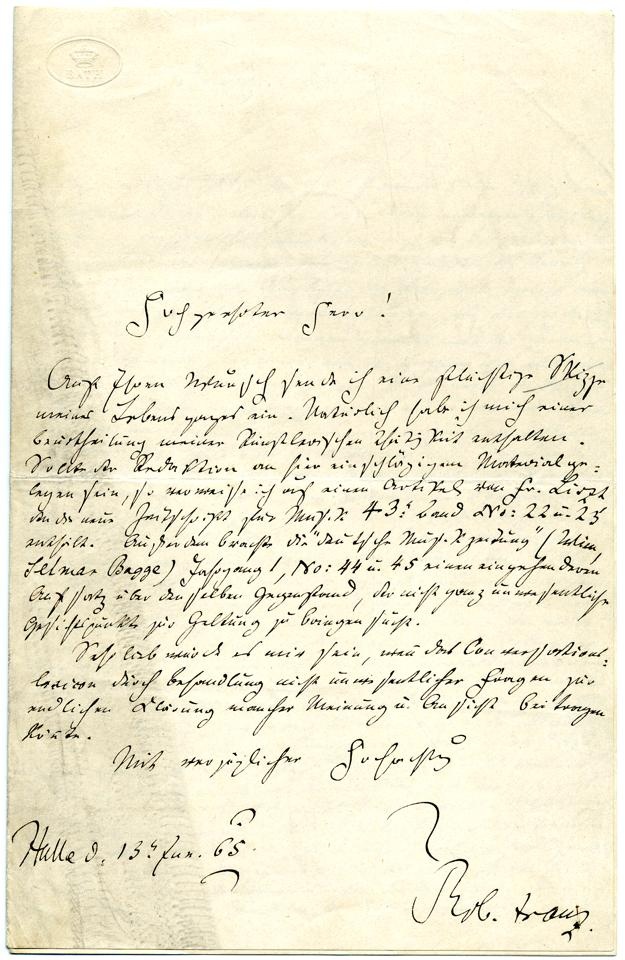 BATH
Hochgeehrter Herr!
Auf Ihren Wunsch sende ich eine flüchtige Skizze
meines Lebensganges ein. Natürlich habe ich mich einer
Beurtheilung meiner künstlerischen Thätigkeit enthalten.
Sollte der Redaktion an hier einschlägigem Material ge=
legen sein, so verweise ich auf einen Artikel von Fr. Liszt
den die neue Zeitschrift für Musik 43r Band No: 22 u. 23
enthält. Außerdem brachte die "deutsche Musikzeitung" (Wien,
Selmar Bagge) Jahrgang 1, No: 44 u. 45 einen eingehenderen
Aufsatz über denselben Gegenstand, der nicht ganz unwesentliche
Gesichtspunkte zur Geltung zu bringen sucht.
Sehr lieb würde es mir sein, wen das Conversations=
lexicon durch Behandlung nicht unwesentlicher Fragen zur
endlichen Klärung mancher Meinung u. Ansicht beitragen
könte.
Mit vorzüglicher Hochachtung
Halle d. 13t Jan. 65.
Rob. Franz.